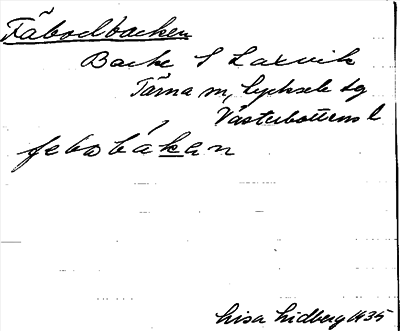 Fäbodbacken
Backe S Laxvik
Tärna sn, Lycksele lg
Västerbottens l
febobákan
Lisa Lidberg 1935